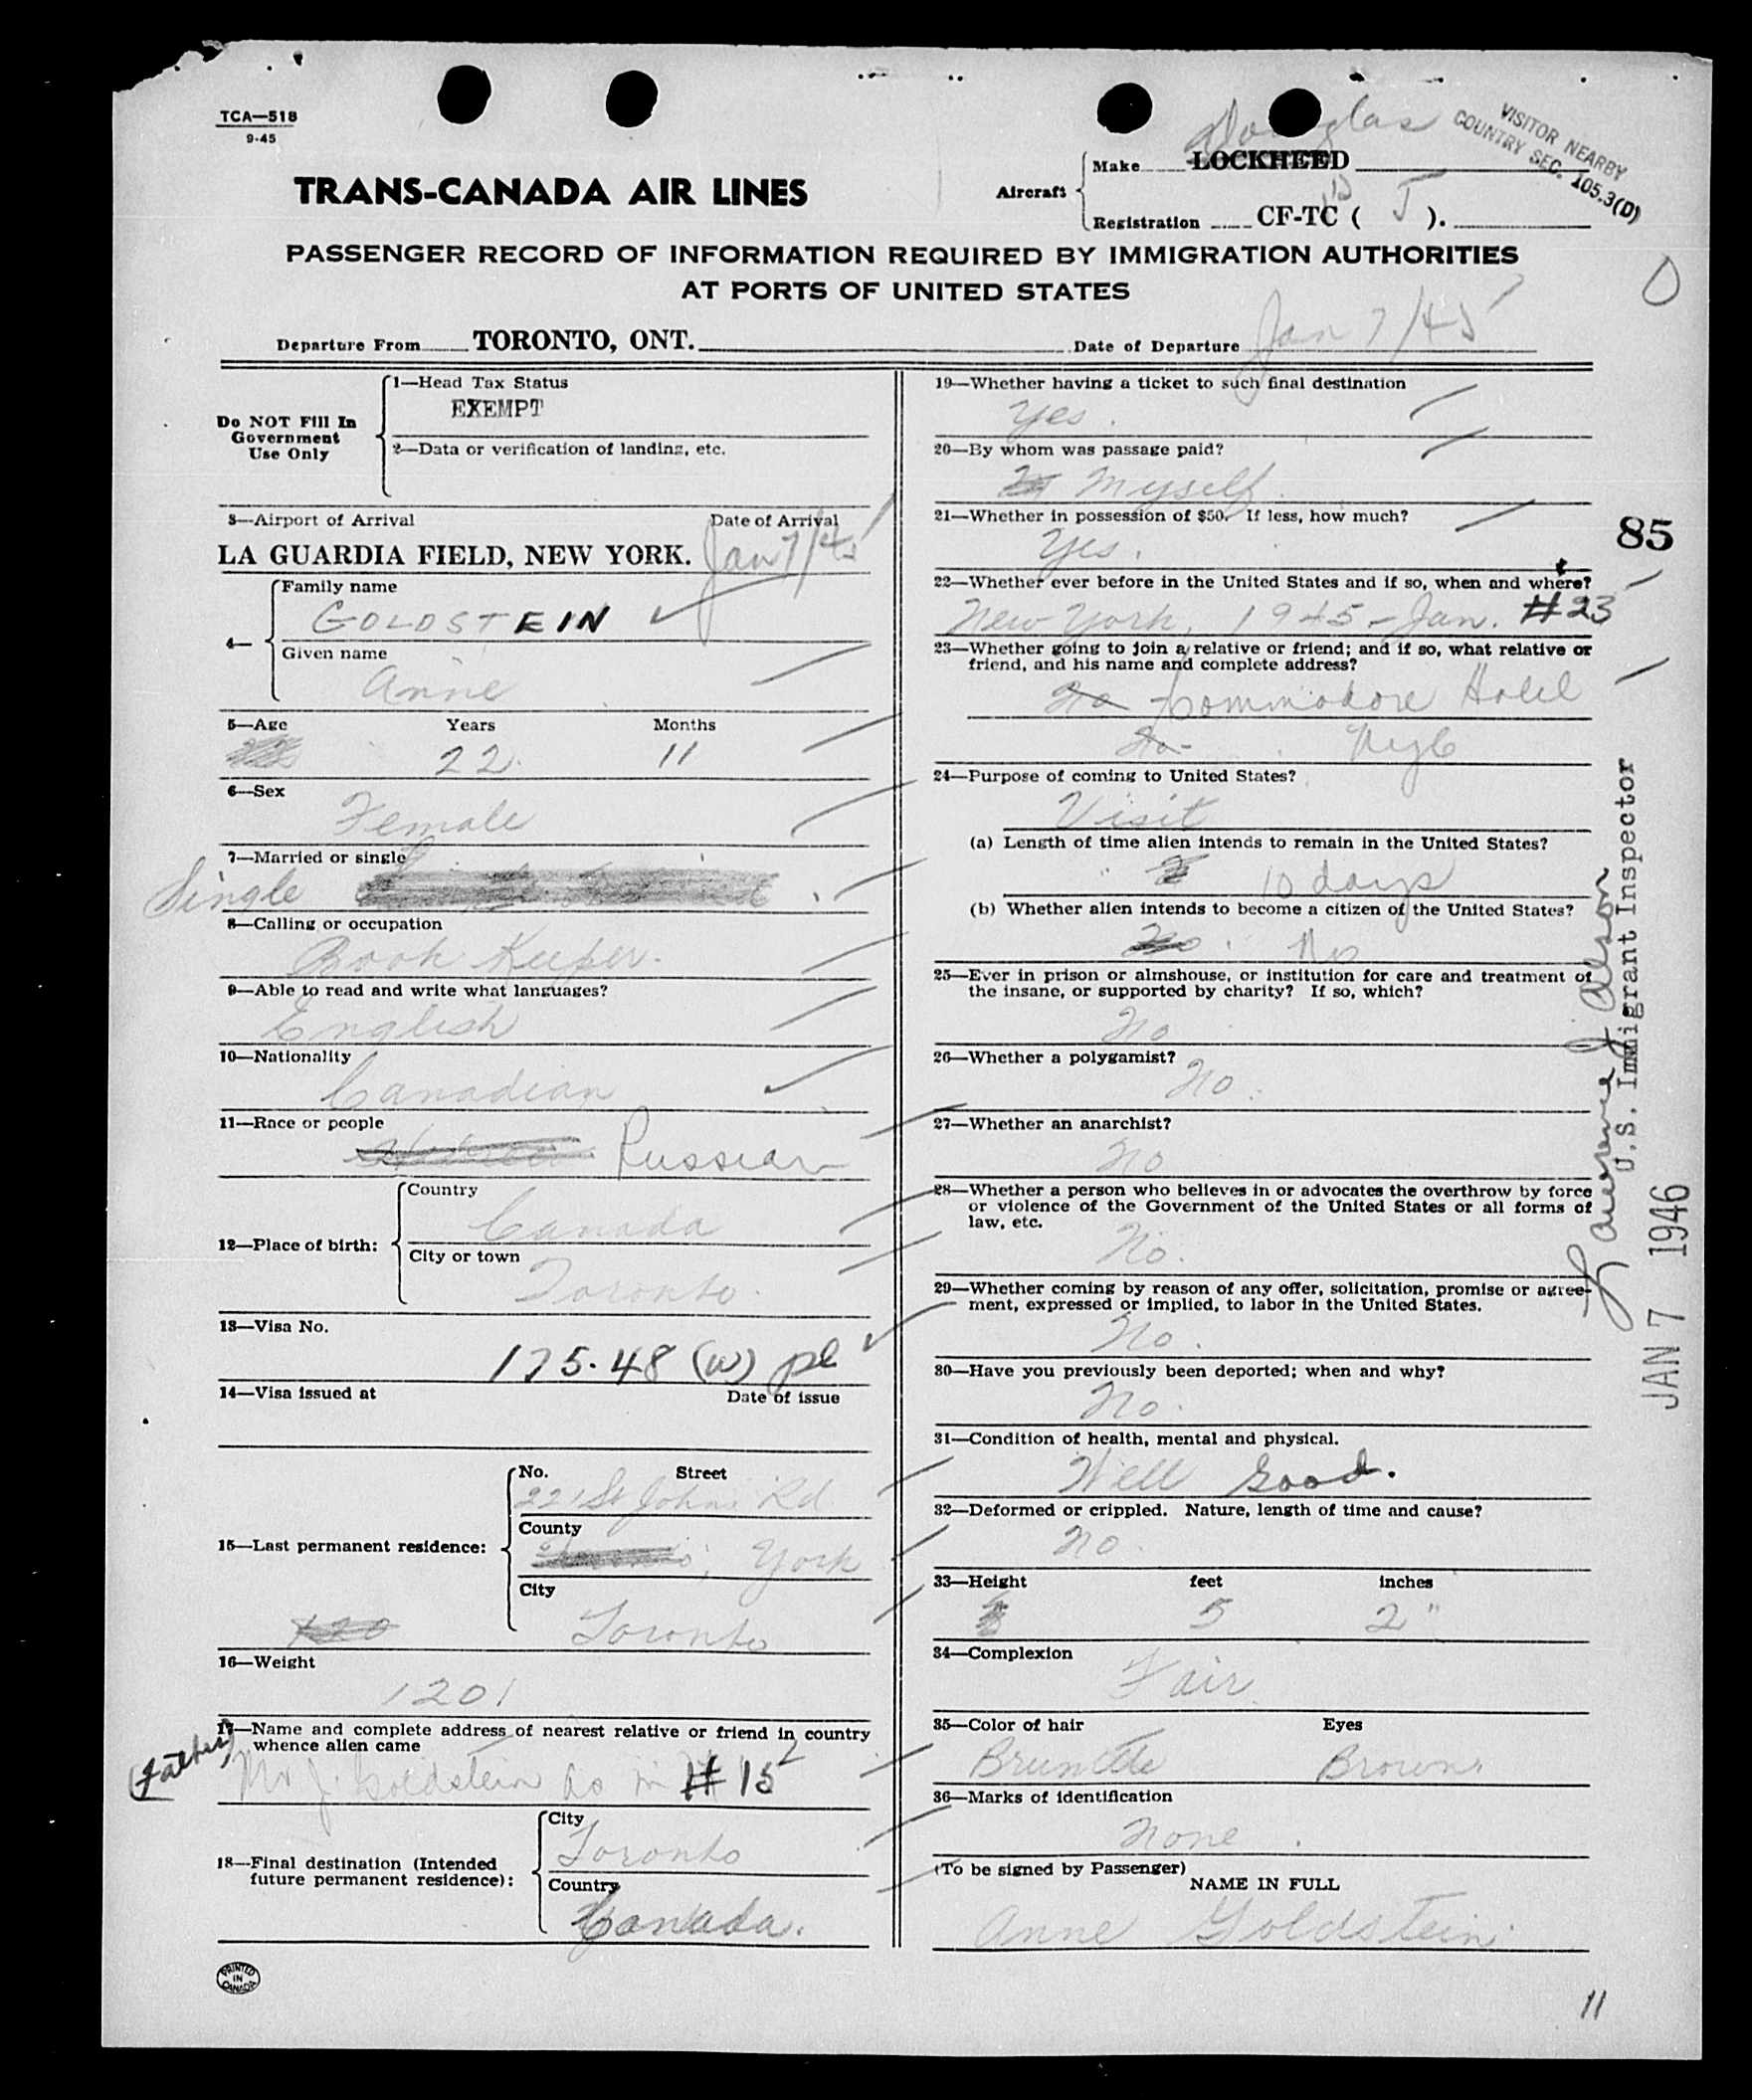 TCA—518
9-45
VISITOR NEARBY
COUNTRY SEC. 105.3(D)
Douglas
Aircraft
Make LOCKHEED
Registration CF-TC ( J ).
TRANS-CANADA AIR LINES
PASSENGER RECORD OF INFORMATION REQUIRED BY IMMIGRATION AUTHORITIES
AT PORTS OF UNITED STATES
Departure From TORONTO, ONT. Date of Departure Jan 7/45
Do NOT Fill In
Government
Use Only
1—Head Tax Status
EXEMPT
2—Data or verification of landing, etc.
3—Airport of Arrival Date of Arrival
LA GUARDIA FIELD, NEW YORK. Jan 7/45
4—
Family name
GOLDSTEIN
Given name
Anne
5—Age Years Months
22 11
6—Sex
Female
7—Married or single
Single
8—Calling or occupation
Book Keeper.
9—Able to read and write what languages?
English
10—Nationality
Canadian
11—Race or people
Russian
12—Place of birth:
Country
Canada
City or town
Toronto.
13—Visa No.
175.48 (w) pl
14—Visa issued at Date of issue
15—Last permanent residence:
No. Street
221 St Johns Rd
County
York
City
Toronto
120
16—Weight
120
17—Name and complete address of nearest relative or friend in country
whence alien came
(Father)
Mr J. Goldstein as in #15
18—Final destination (Intended
future permanent residence):
City
Toronto
Country
Canada.
PRINTED
IN
CANADA
19—Whether having a ticket to such final destination
Yes.
20—By whom was passage paid?
Myself.
21—Whether in possession of $50. If less, how much?
Yes.
22—Whether ever before in the United States and if so, when and where?
New York, 1945 - Jan. #23
23—Whether going to join a relative or friend; and if so, what relative or
friend, and his name and complete address?
No Commodore Hotel
No- NYC
24—Purpose of coming to United States?
Visit
(a) Length of time alien intends to remain in the United States?
10 days
(b) Whether alien intends to become a citizen of the United States?
No. No
25—Ever in prison or almshouse, or institution for care and treatment of
the insane, or supported by charity? If so, which?
No
26—Whether a polygamist?
No.
27—Whether an anarchist?
No
28—Whether a person who believes in or advocates the overthrow by force
or violence of the Government of the United States or all forms of
law, etc.
No.
29—Whether coming by reason of any offer, solicitation, promise or agree-
ment, expressed or implied, to labor in the United States.
No.
30—Have you previously been deported; when and why?
No.
31—Condition of health, mental and physical.
Well Good.
32—Deformed or crippled. Nature, length of time and cause?
No.
33—Height feet inches
5 2"
34—Complexion
Fair
35—Color of hair Eyes
Brunette Brown.
36—Marks of identification
None.
(To be signed by Passenger)
NAME IN FULL
Anne Goldstein.
85
U.S. Immigrant Inspector
JAN 7 1946
11